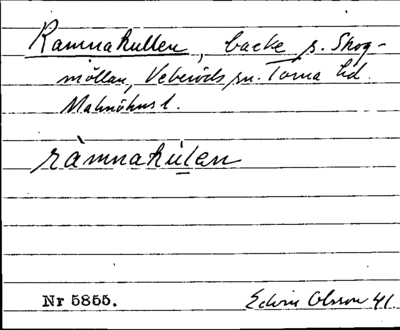 Ramnakullen, backe s. Skog-
möllan, Veberöds sn. Torna hd.
Malmöhus l.
ràmnakúlen
Nr 5855. Edvin Olsson 41.